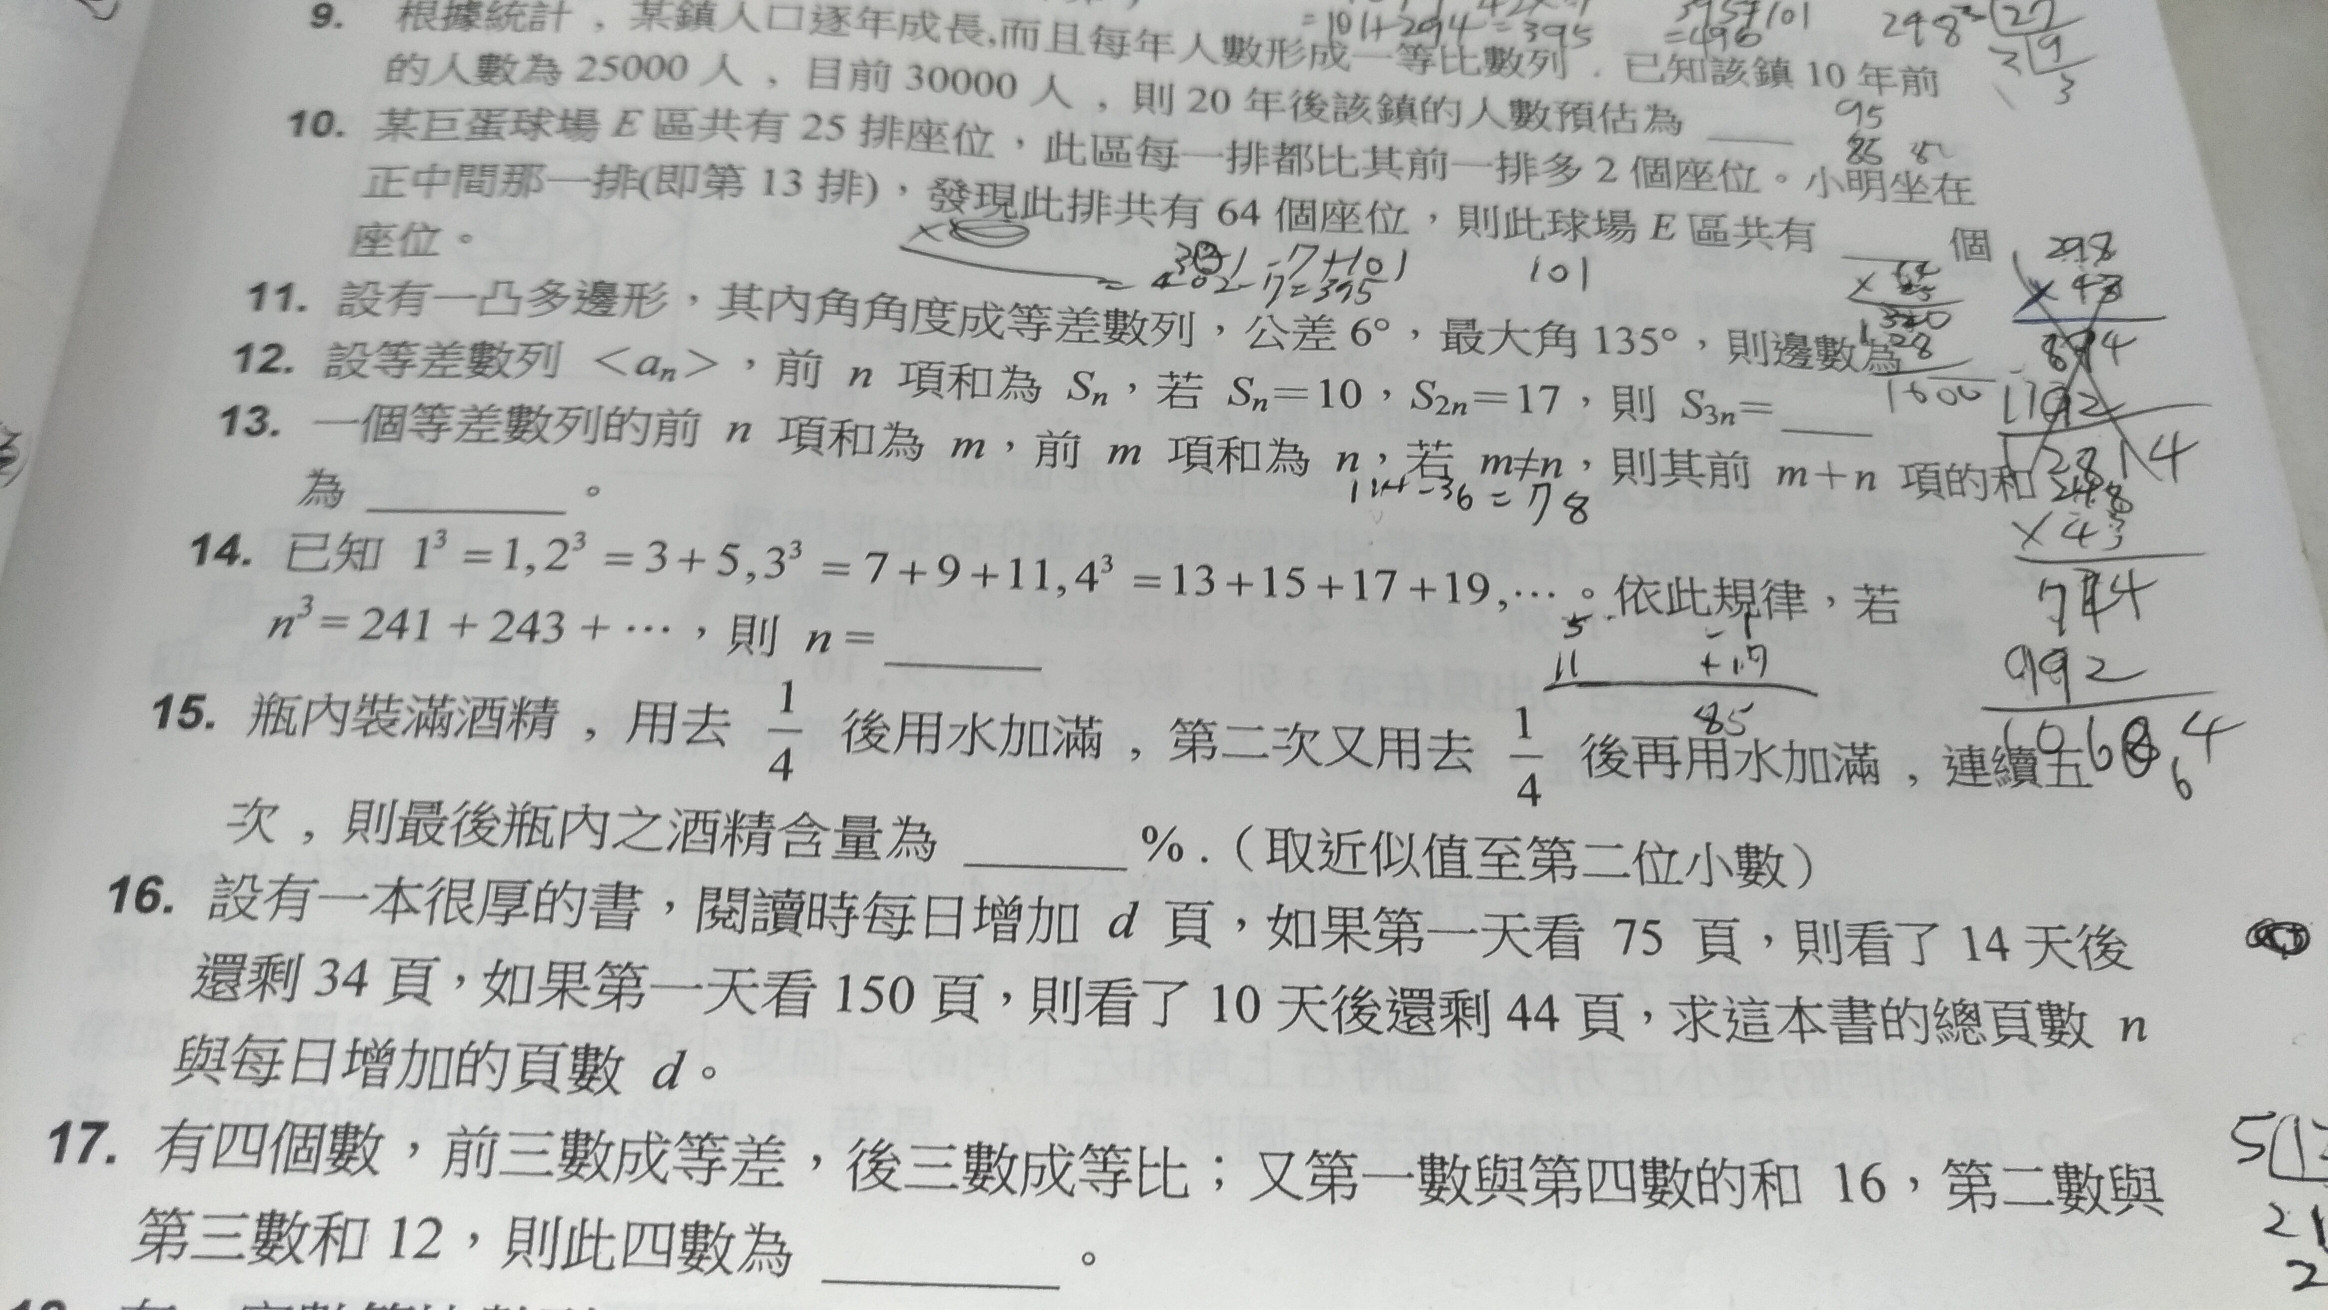 9. 根據統計，某鎮人口逐年成長,而且每年人數形成一等比數列．已知該鎮 10 年前
的人數為 25000 人，目前 30000 人，則 20 年後該鎮的人數預估為 ____
10. 某巨蛋球場 E 區共有 25 排座位，此區每一排都比其前一排多 2 個座位。小明坐在
正中間那一排(即第 13 排)，發現此排共有 64 個座位，則此球場 E 區共有 ____ 個
座位。
11. 設有一凸多邊形，其內角角度成等差數列，公差 6°，最大角 135°，則邊數為
12. 設等差數列 <aₙ>，前 n 項和為 Sₙ，若 Sₙ=10，S₂ₙ=17，則 S₃ₙ= ____
13. 一個等差數列的前 n 項和為 m，前 m 項和為 n，若 m≠n，則其前 m+n 項的和
為 ________ 。
14. 已知 1³ =1, 2³ =3+5, 3³ =7+9+11, 4³ =13+15+17+19,⋯。依此規律，若
n³=241+243+⋯，則 n= ____
15. 瓶內裝滿酒精，用去 1/4 後用水加滿，第二次又用去 1/4 後再用水加滿，連續五
次，則最後瓶內之酒精含量為 ____ %．（取近似值至第二位小數）
16. 設有一本很厚的書，閱讀時每日增加 d 頁，如果第一天看 75 頁，則看了 14 天後
還剩 34 頁，如果第一天看 150 頁，則看了 10 天後還剩 44 頁，求這本書的總頁數 n
與每日增加的頁數 d。
17. 有四個數，前三數成等差，後三數成等比；又第一數與第四數的和 16，第二數與
第三數和 12，則此四數為 ________ 。
=101+294=395
=496
95
101
298
×43
1600
=78
×43
992
+17
85